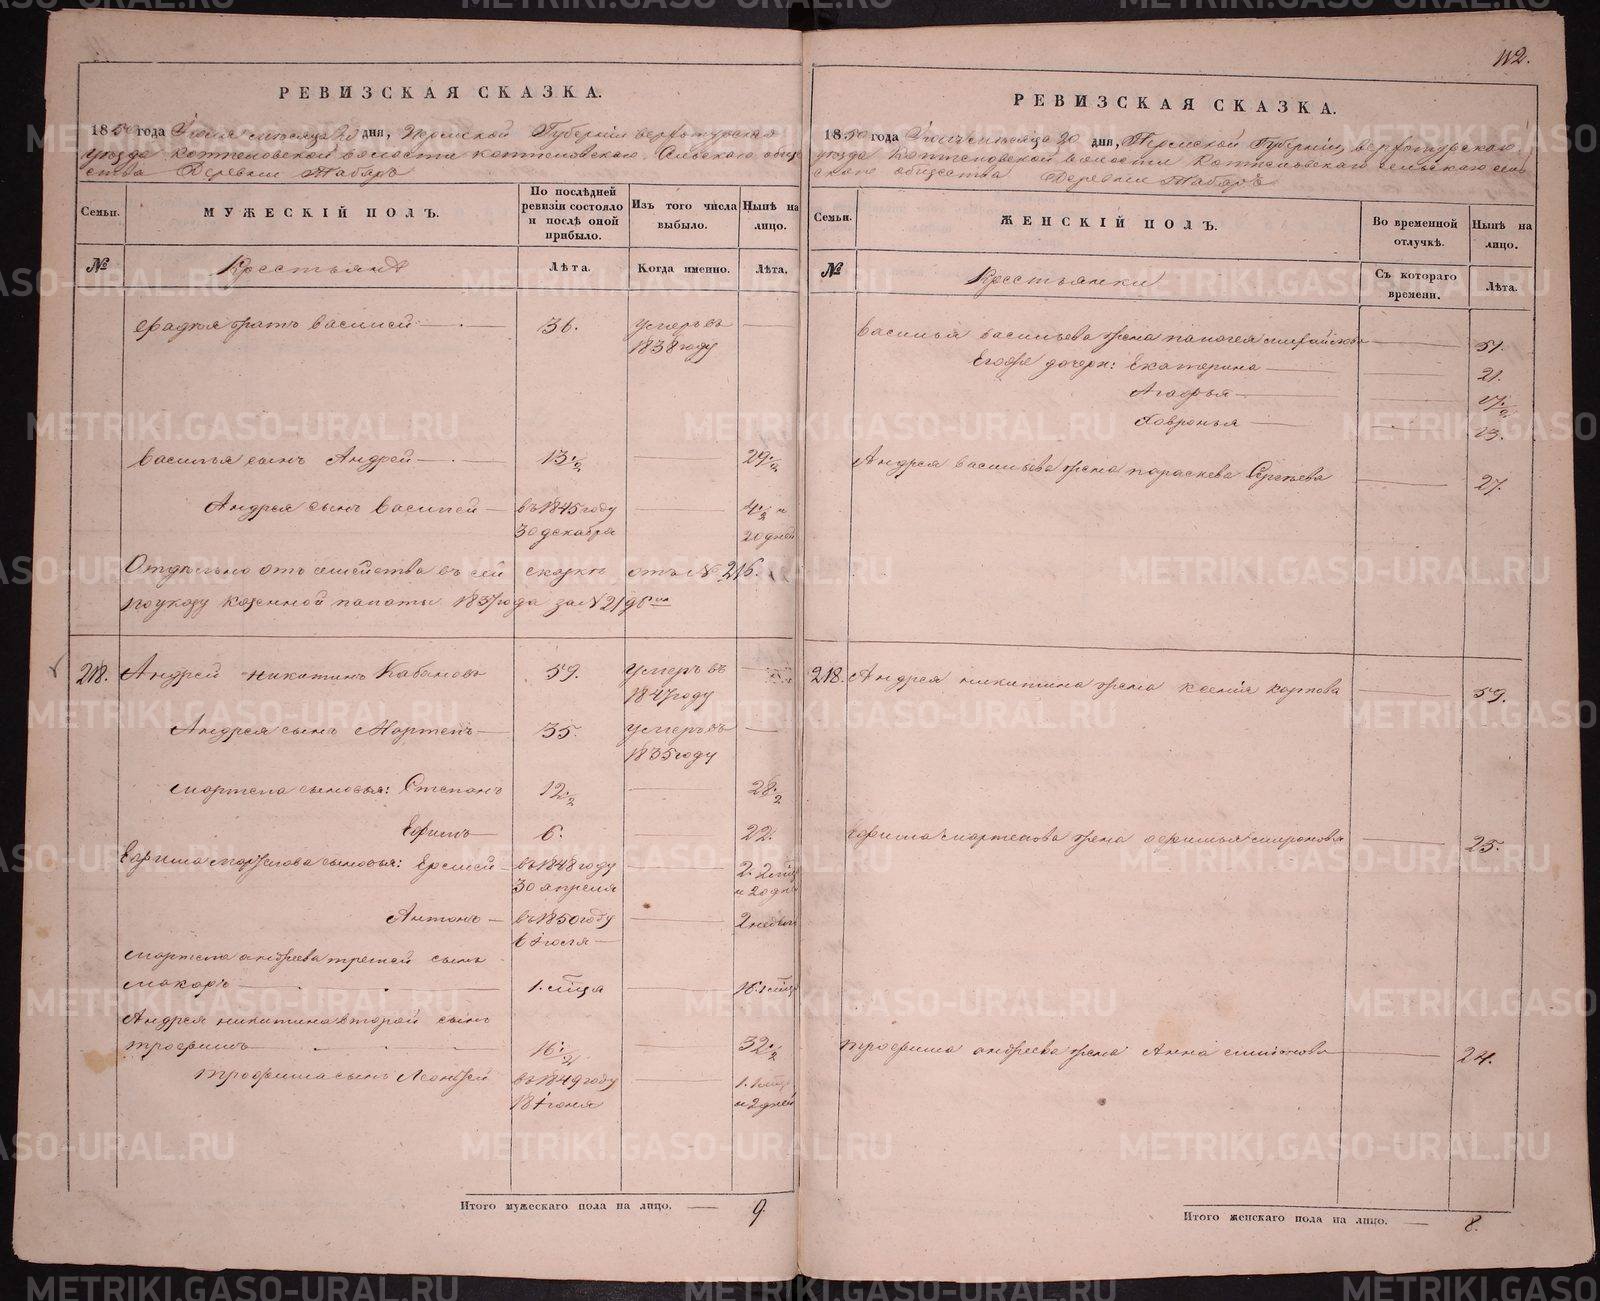 112.
РЕВИЗСКАЯ СКАЗКА.
1850 года Июля месяца 20 дня, Пермской Губернiи верхотурскаго
уезда Коптеловской волости Коптеловскаго Сельскаго обще
ства Деревни Табаръ
Семьи. МУЖЕСКIЙ ПОЛЪ. По послѣдней ревизiи состояло и послѣ оной прибыло. Изъ того числа выбыло. Нынѣ на лицо.
№ Крестьяне Лѣта. Когда именно. Лѣта.
братъ василей 36. умеръ въ
1838 году
василья сынъ Андрей 13 1/2 29 1/2
Андрея сынъ василей въ 1845 году 4 1/2 и
30 декабря 20 дней
Отдельно отъ семейства въ сей сказки отъ № 216.
по указу казенной палаты 1837 года за №
218. Андрей никитинъ Кабановъ 59. умеръ въ
1847 году
Андрея сынъ Мартемъ 35. умеръ въ
1835 году
мартема сыновья: Степанъ 12 1/2 28 1/2
Ефимъ 6. 22.
Ефима мартемова сыновья: Еремей въ 1848 году 2. 2 мѣца
30 апреля и 20 дн
Антонъ въ 1850 году 2 недели
6 Июля
мартема андреева третей сынъ
макаръ 1. мѣца 16. 1 мѣц
Андрея никитина второй сынъ
трофимъ 16 1/2 32 1/2
трофима сынъ Леонтей въ 1849 году 1. 1 мѣц
18 Июня и 2 дней
Итого мужескаго пола на лицо. 9.
РЕВИЗСКАЯ СКАЗКА.
1850 года Июля месяца 20 дня, Пермской Губернiи верхотурскаго
уезда Коптеловской волости Коптеловскаго сельскаго
общества Деревни Табаръ
Семьи. ЖЕНСКIЙ ПОЛЪ. Во временной отлучкѣ. Нынѣ на лицо.
№ Крестьянки Съ котораго времени. Лѣта.
василья васильева жена палагея 51.
Его же дочери: Екатерина 21.
Агафья 17 1/2
Ховронья 13.
Андрея васильева жена параскева Сергеева 27.
218. Андрея никитина жена ксенiя карпова 59.
Ефима мартемова жена афимья миронова 25.
трофима андреева жена Анна 24.
Итого женскаго пола на лицо. 8.
METRIKI.GASO-URAL.RU